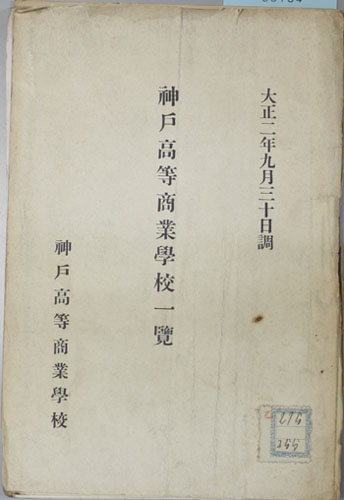 大正二年九月三十日調
神戶高等商業學校一覽
神戶高等商業學校
255